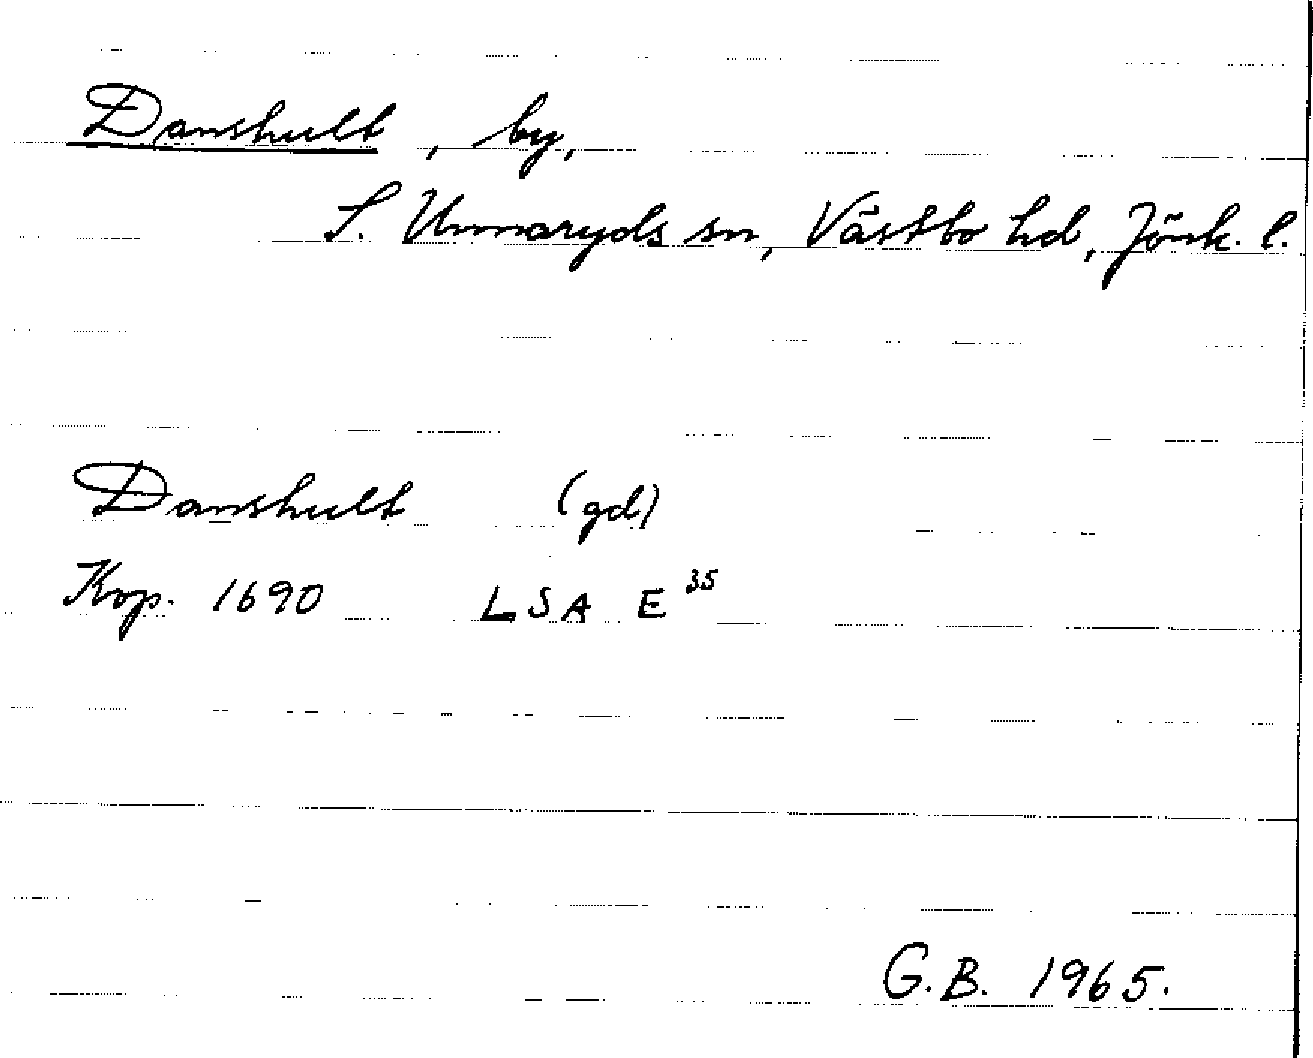 Danshult, by,
S. Unnaryds sn, Västbo hd, Jönk. l.
Danshult (gd)
Kop. 1690 LSA E 35
G.B. 1965.